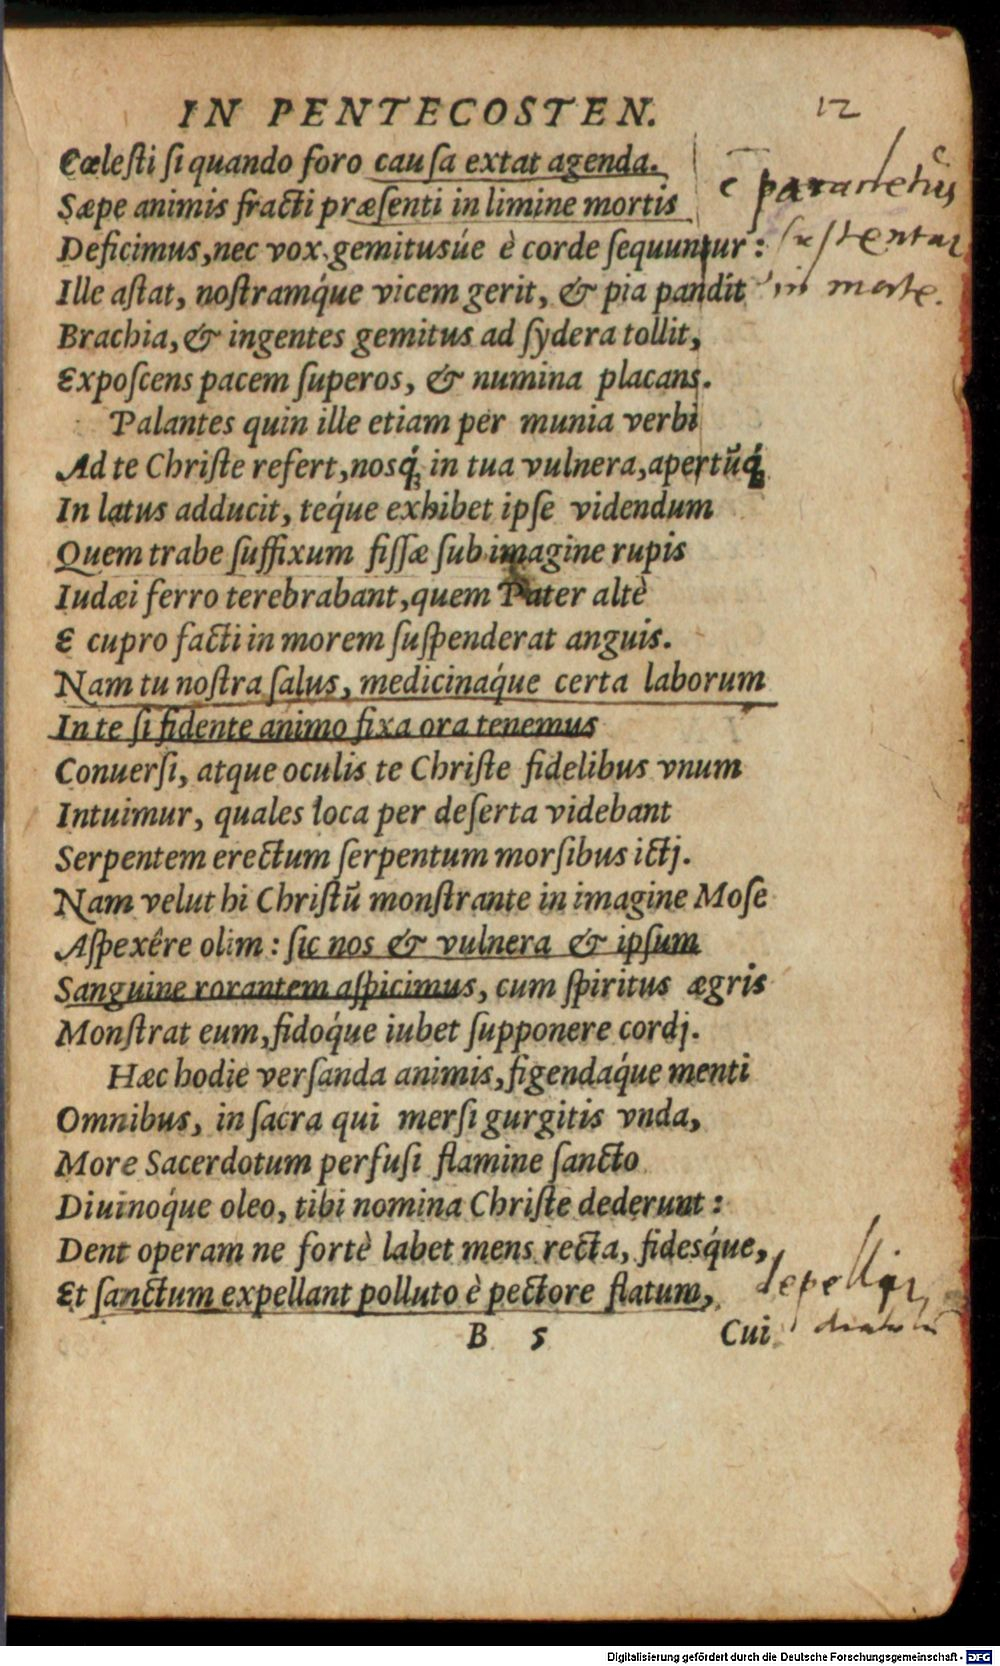 IN PENTECOSTEN.
12
Cœlesti si quando foro causa extat agenda.
Sæpe animis fracti præsenti in limine mortis
Deficimus, nec vox, gemitusúe è corde sequuntur:
Ille astat, nostramq́ue vicem gerit, & pia pandit
Brachia, & ingentes gemitus ad sydera tollit,
Exposcens pacem superos, & numina placans.
Palantes quin ille etiam per munia verbi
Ad te Christe refert, nosq́; in tua vulnera, apertũq́;
In latus adducit, teq́ue exhibet ipse videndum
Quem trabe suffixum fissæ sub imagine rupis
Iudæi ferro terebrabant, quem Pater altè
E cupro facti in morem suspenderat anguis.
Nam tu nostra salus, medicinaq́ue certa laborum
In te si fidente animo fixa ora tenemus
Conuersi, atque oculis te Christe fidelibus vnum
Intuimur, quales loca per deserta videbant
Serpentem erectum serpentum morsibus ictj.
Nam velut hi Christũ monstrante in imagine Mose
Aspexêre olim: sic nos & vulnera & ipsum
Sanguine rorantem aspicimus, cum spiritus ægris
Monstrat eum, fidoq́ue iubet supponere cordj.
Hæc hodie versanda animis, figendaq́ue menti
Omnibus, in sacra qui mersi gurgitis vnda,
More Sacerdotum perfusi flamine sancto
Diuinoq́ue oleo, tibi nomina Christe dederunt:
Dent operam ne fortè labet mens recta, fidesq́ue,
Et sanctum expellant polluto è pectore flatum,
B 5
Cui
paracletus
sustentar
in morte.
Digitalisierung gefördert durch die Deutsche Forschungsgemeinschaft - DFG